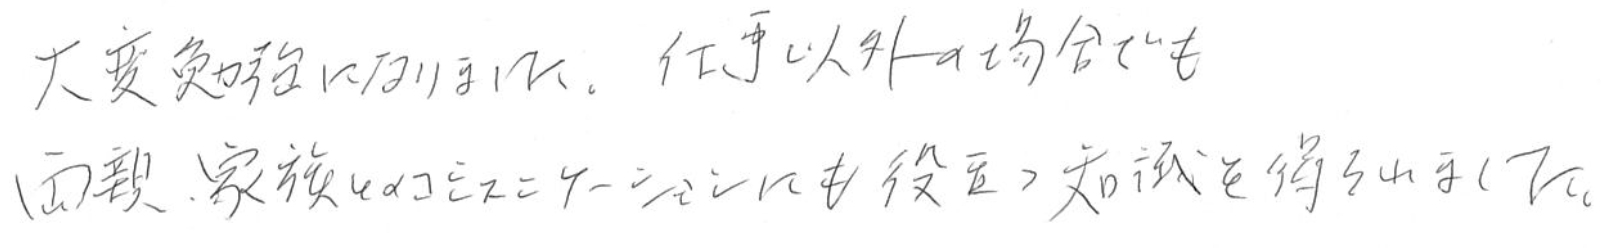 大変勉強になりました。仕事以外の場合でも
両親、家族とのコミュニケーションにも役立つ知識を得られました。